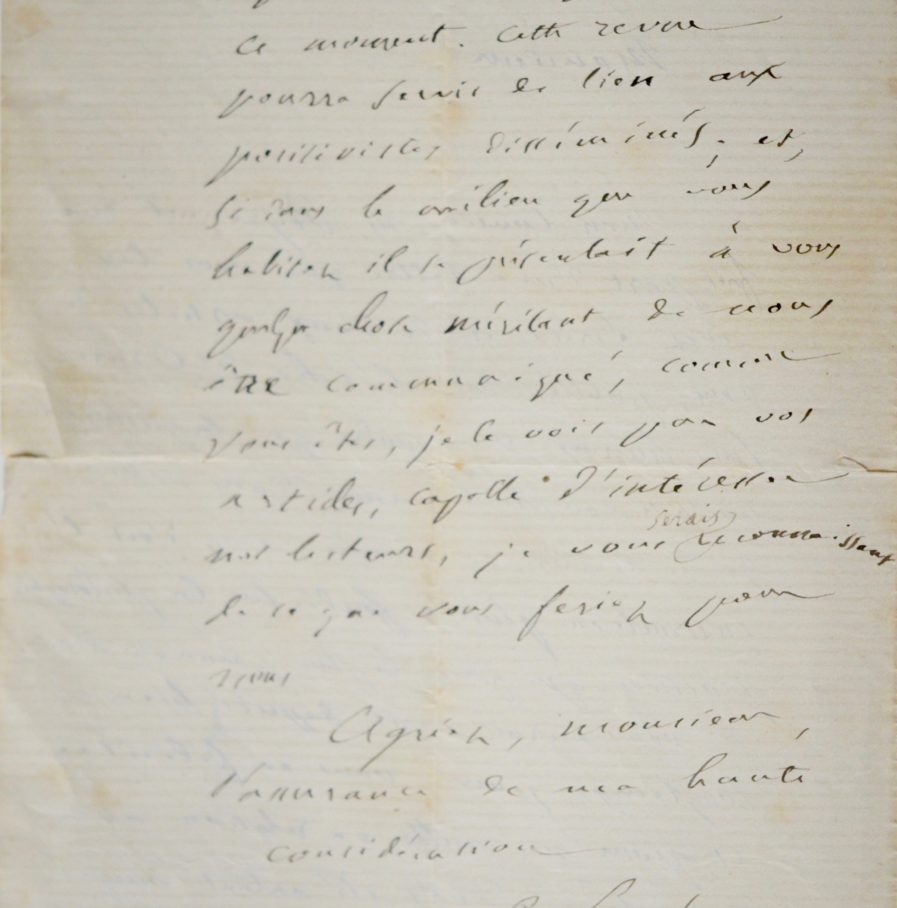 ce moment. Cette revue
pourra servir de lien aux
positivistes disséminés ; et,
si dans le milieu que vous
habitez il se présentait à vous
quelque chose méritant de nous
être communiqué, comme
vous êtes, je le vois par vos
articles, capable d'intéresser
nos lecteurs, je vous serais reconnaissant
de ce que vous feriez pour
nous
Agréez, monsieur,
l'assurance de ma haute
considération